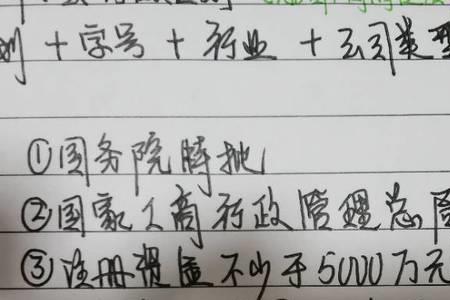 划 + 字号 + 行业 + 公司类型
①国务院特批
②国家工商行政管理总局
③注册资金不少于5000万元